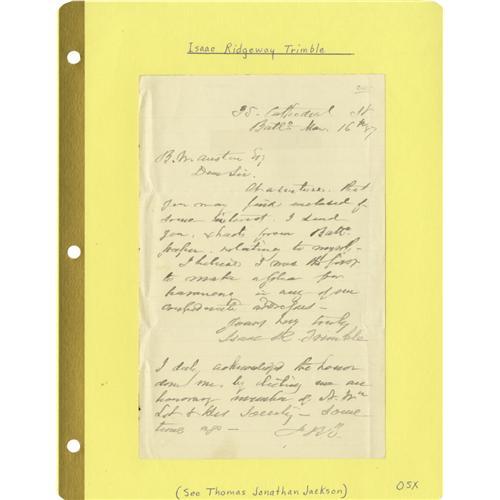 Isaac Ridgeway Trimble
35 Cathedral St
Balto Mar. 16th
B. M. Austin Esq
Dear Sir.
that
you may find enclosed of
some interest. I send
you from Balto
paper, relating to myself.
I believe I was the first
to make a plea for
in any of our
Confederate
Yours very truly
Isaac R Trimble
I duly acknowledge the honor
done me, by electing me an
honorary member of
Society - some
time ago -
(See Thomas Jonathan Jackson)
OSX